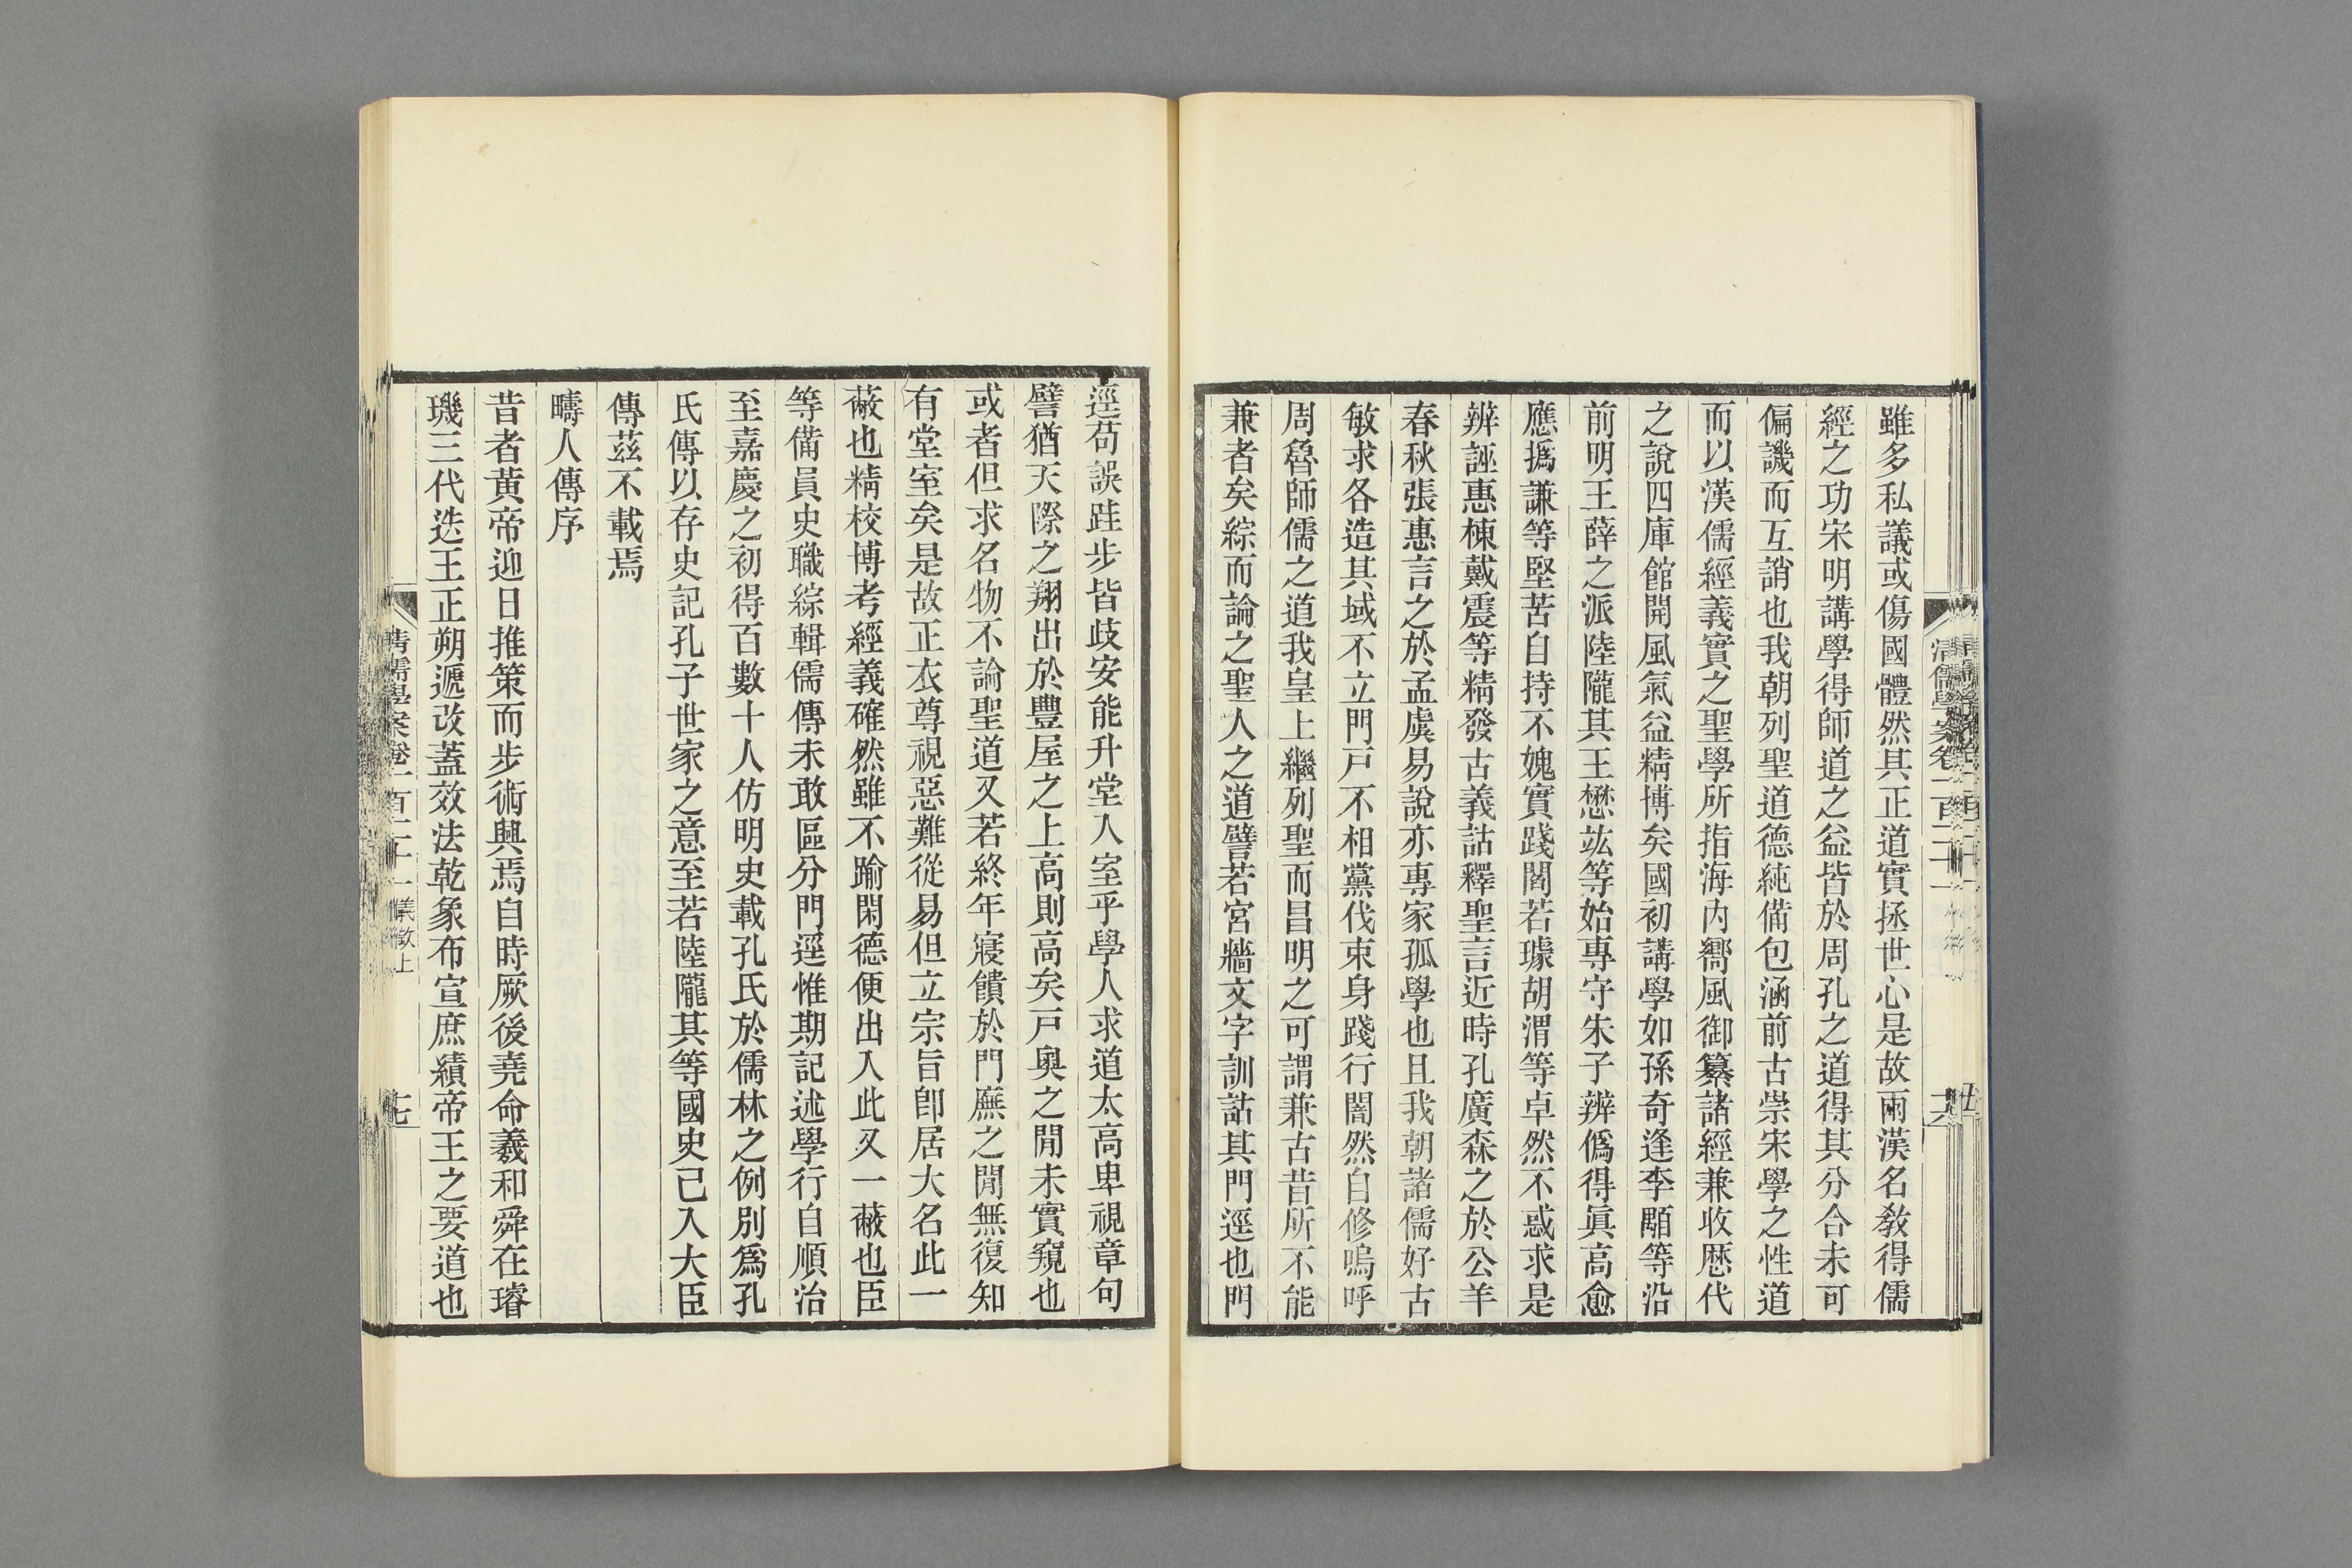 雖多私議或傷國體然其正道實拯世心是故兩漢名敎得儒
經之功宋明講學得師道之益皆於周孔之道得其分合未可
偏譏而互誚也我朝列聖道德純備包涵前古崇宋學之性道
而以漢儒經義實之聖學所指海內嚮風御纂諸經兼收歷代
之說四庫館開風氣益精博矣國初講學如孫奇逢李顒等沿
前明王薛之派陸隴其王懋竑等始專守朱子辨僞得眞高愈
應撝謙等堅苦自持不媿實踐閻若璩胡渭等卓然不惑求是
辨誣惠棟戴震等精發古義詁釋聖言近時孔廣森之於公羊
春秋張惠言之於孟虞易說亦專家孤學也且我朝諸儒好古
敏求各造其域不立門戸不相黨伐束身踐行闇然自修嗚呼
周魯師儒之道我皇上繼列聖而昌明之可謂兼古昔所不能
兼者矣綜而論之聖人之道譬若宮牆文字訓詁其門逕也門
逕苟誤跬步皆歧安能升堂入室乎學人求道太高卑視章句
譬猶天際之翔出於豐屋之上高則高矣戸奧之閒未實窺也
或者但求名物不論聖道又若終年寢饋於門廡之閒無復知
有堂室矣是故正衣尊視惡難從易但立宗旨卽居大名此一
蔽也精校博考經義確然雖不踰閑德便出入此又一蔽也臣
等備員史職綜輯儒傳未敢區分門逕惟期記述學行自順治
至嘉慶之初得百數十人仿明史載孔氏於儒林之例別爲孔
氏傳以存史記孔子世家之意至若陸隴其等國史已入大臣
傳茲不載焉
疇人傳序
昔者黃帝迎日推策而步術興焉自時厥後堯命羲和舜在璿
璣三代迭王正朔遞改蓋效法乾象布宣庶績帝王之要道也
清儒學案卷一百二十一 儀徵上
十七